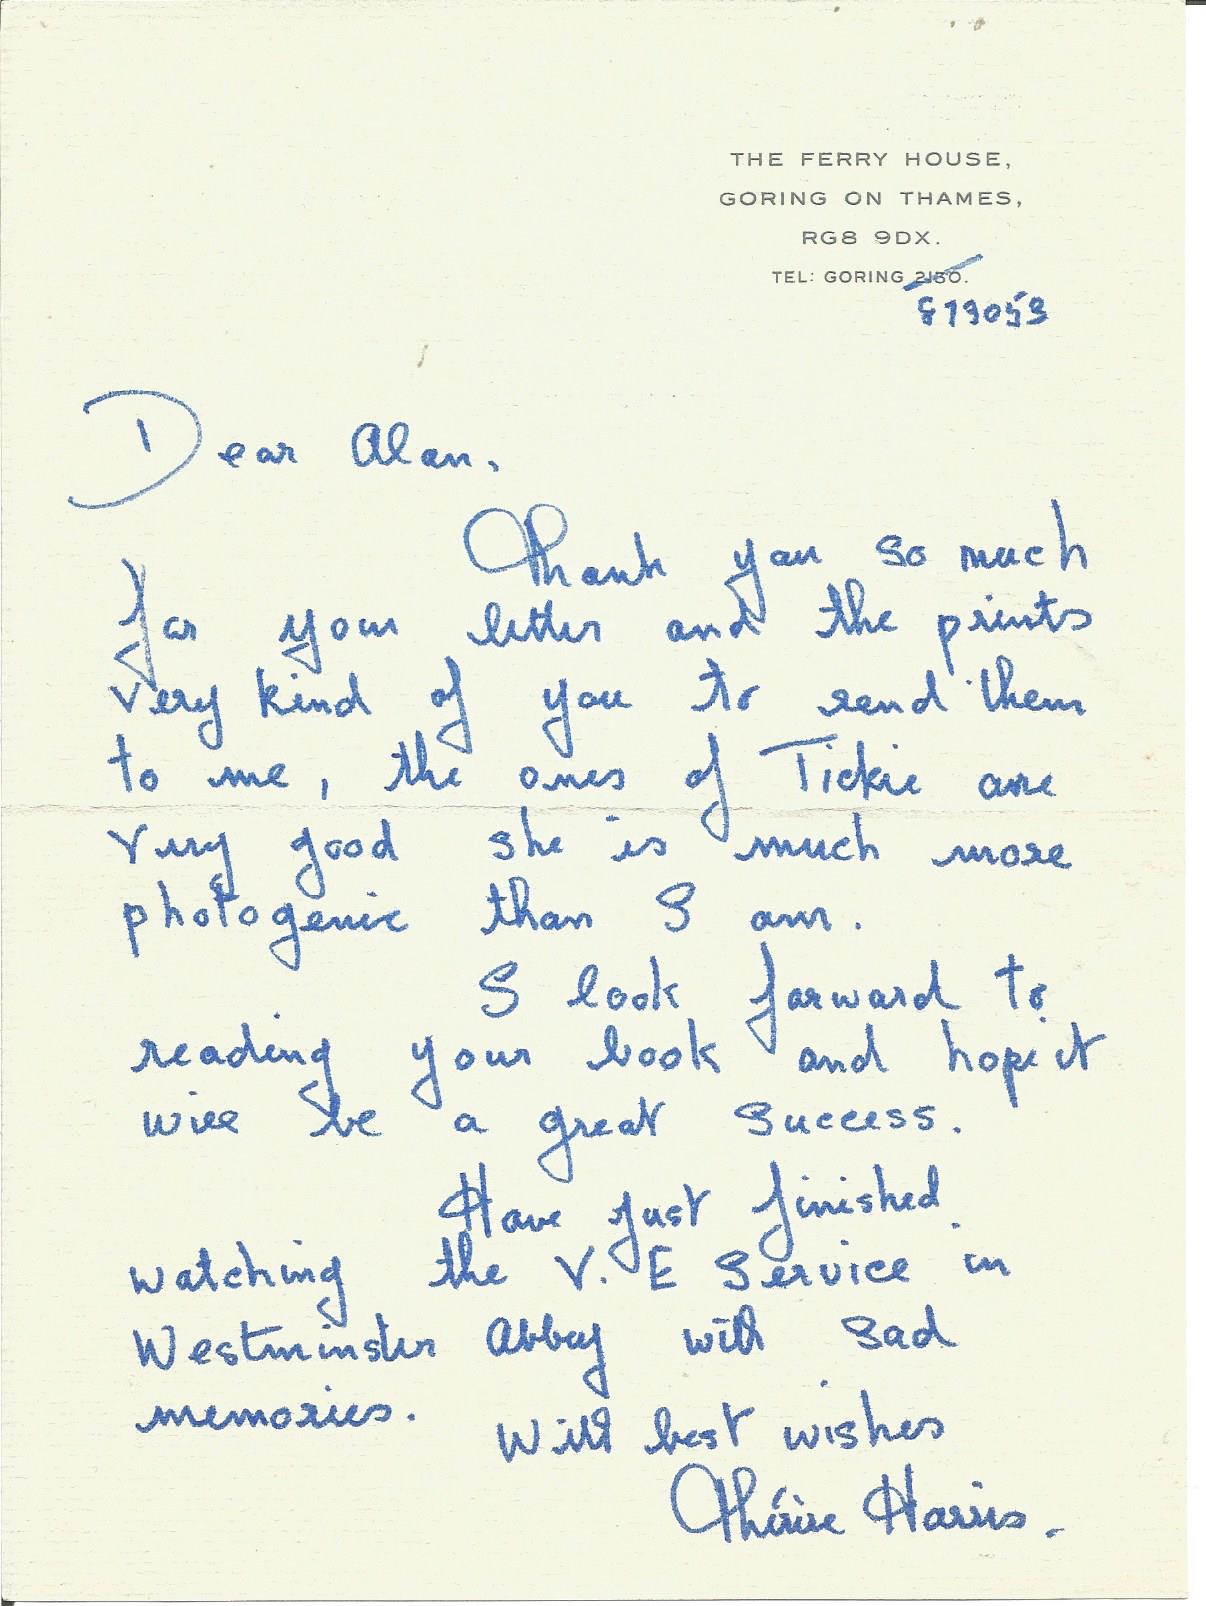 THE FERRY HOUSE,
GORING ON THAMES,
RG8 9DX.
TEL: GORING 2130.
873053
Dear Alan,
Thank you so much
for your letter and the prints
very kind of you to send them
to me, the ones of Tickie are
very good she is much more
photogenic than I am.
I look forward to
reading your book and hope it
will be a great success.
Have just finished
watching the V.E Service in
Westminster Abbey with sad
memories.
With best wishes
Thérèse Harris.